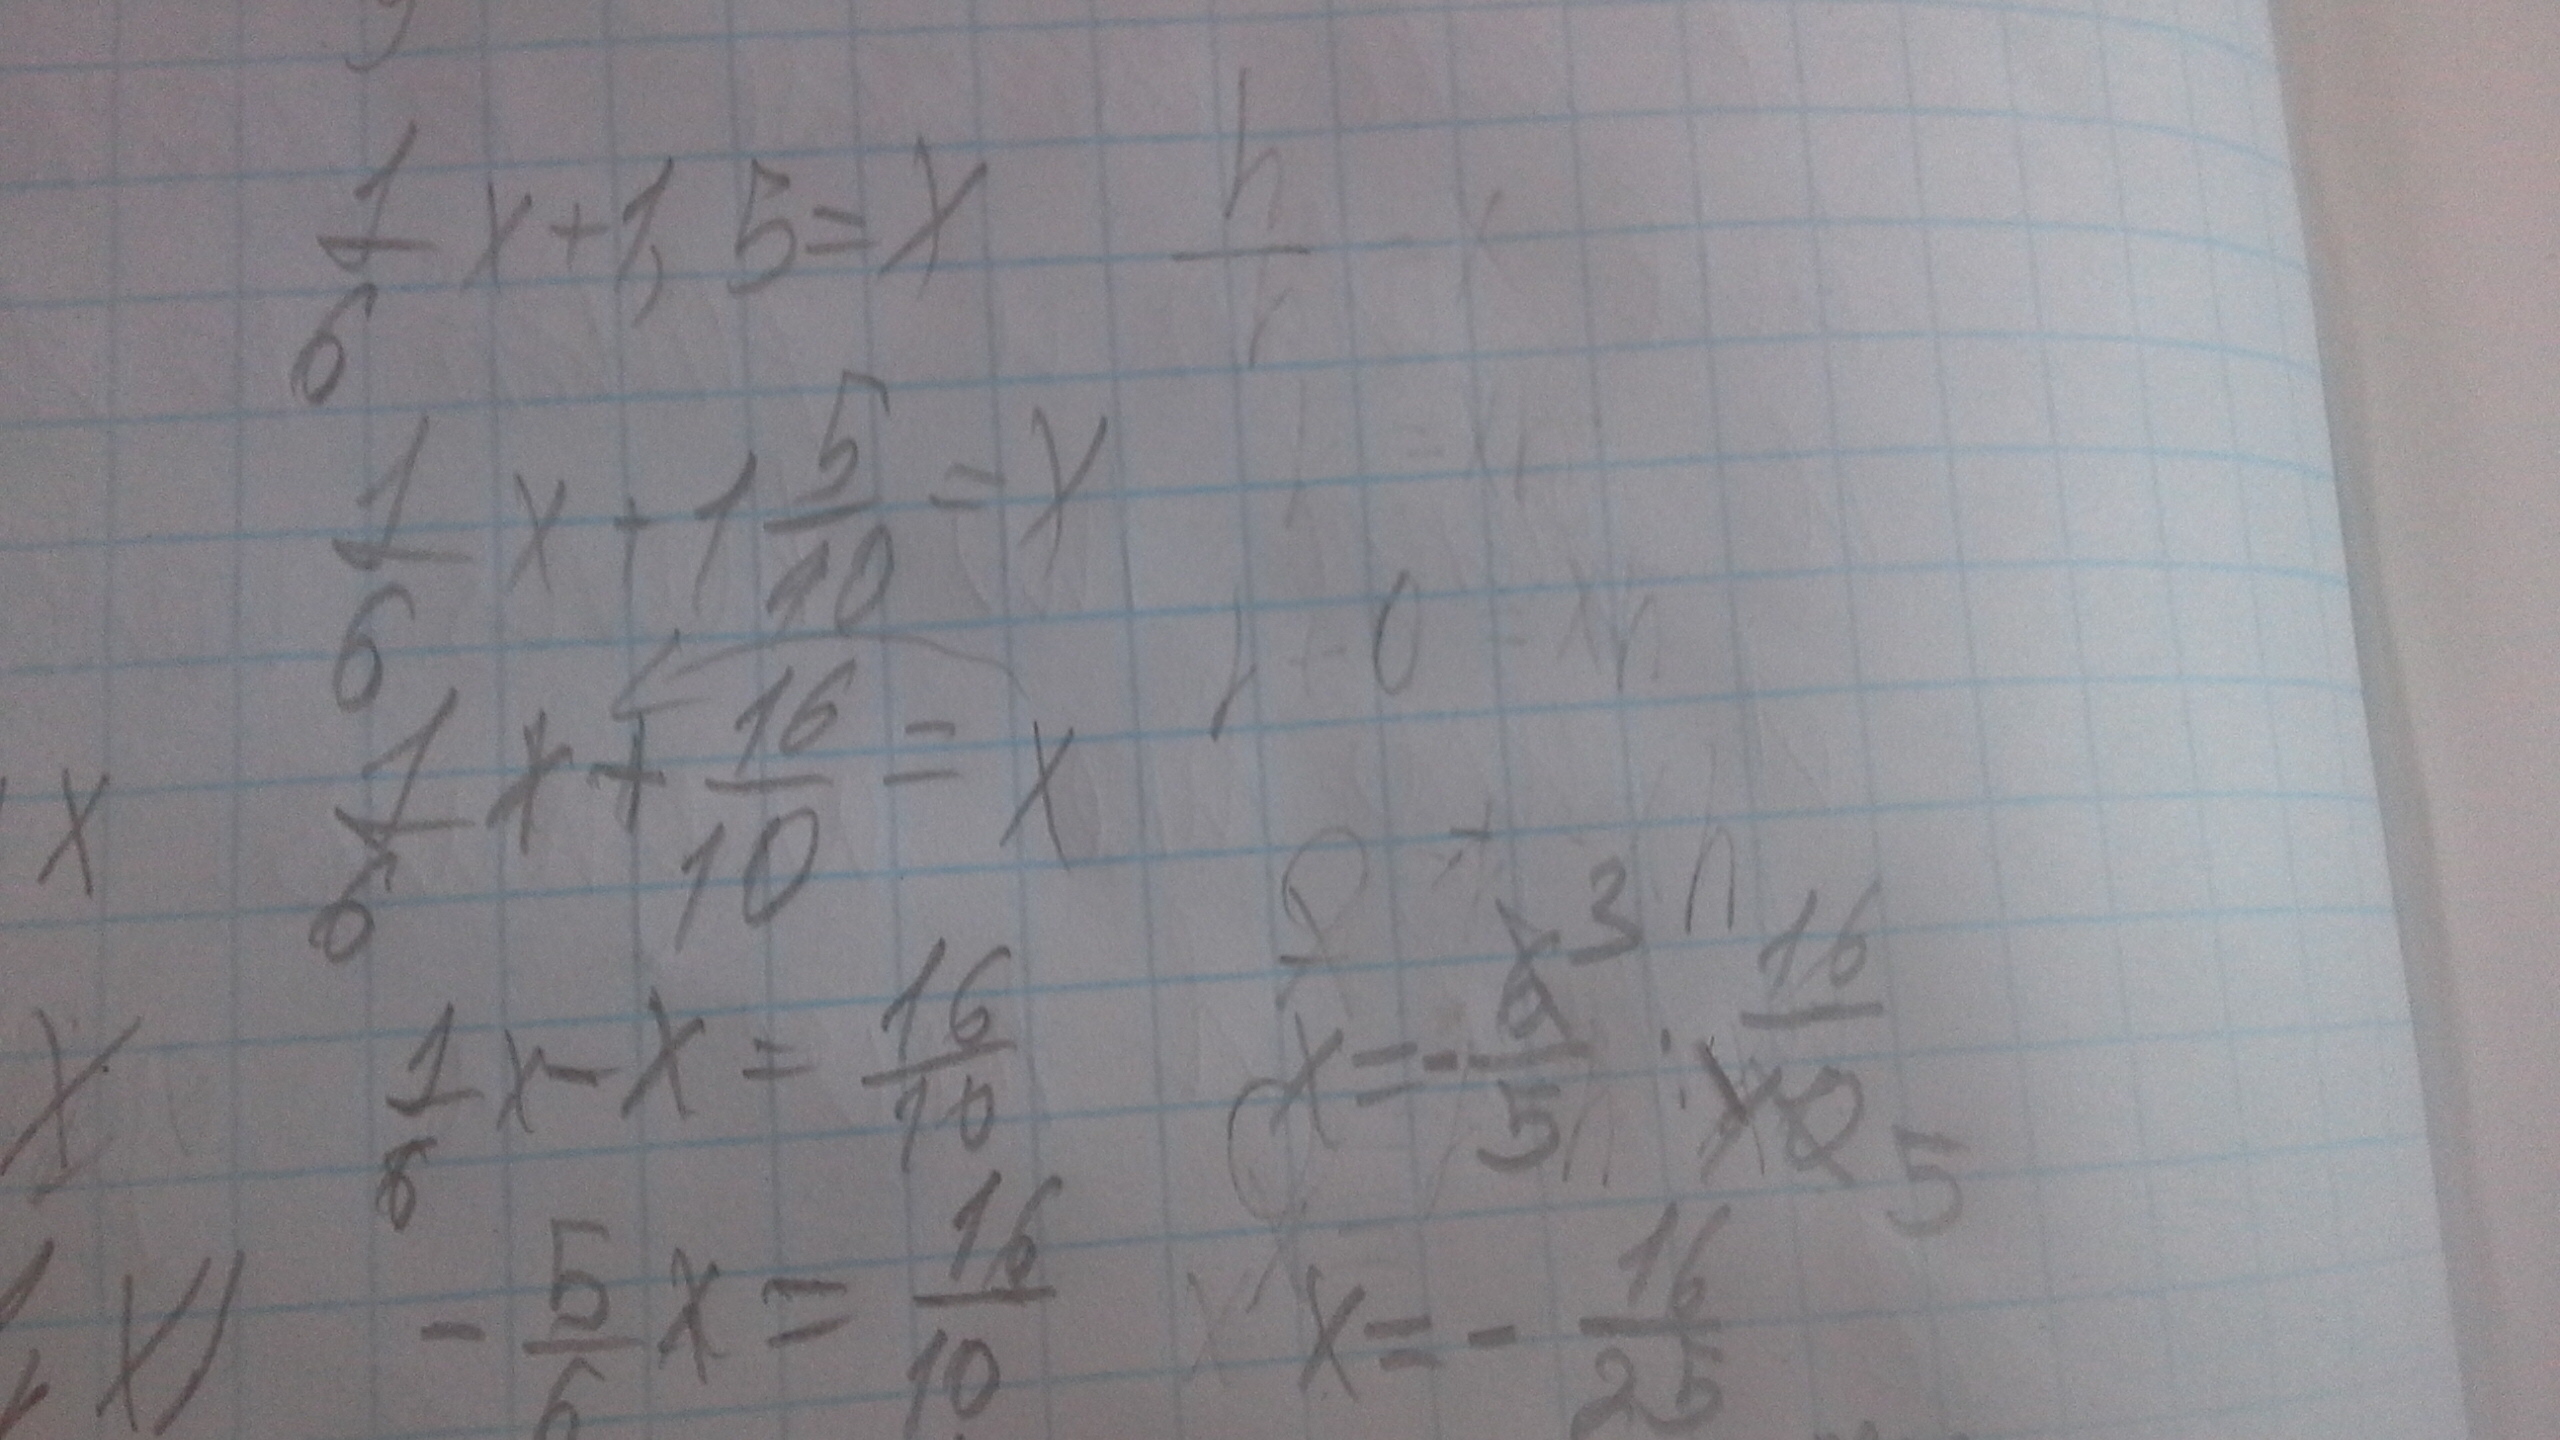 1/6 x + 1,5 = x
1/6 x + 1 5/10 = x
1/6 x + 16/10 = x
x
1/6 x - x = 16/10
x
- 5/6 x = 16/10
x)
x = - 6 3/5 · 16/10 5
x = - 16/25